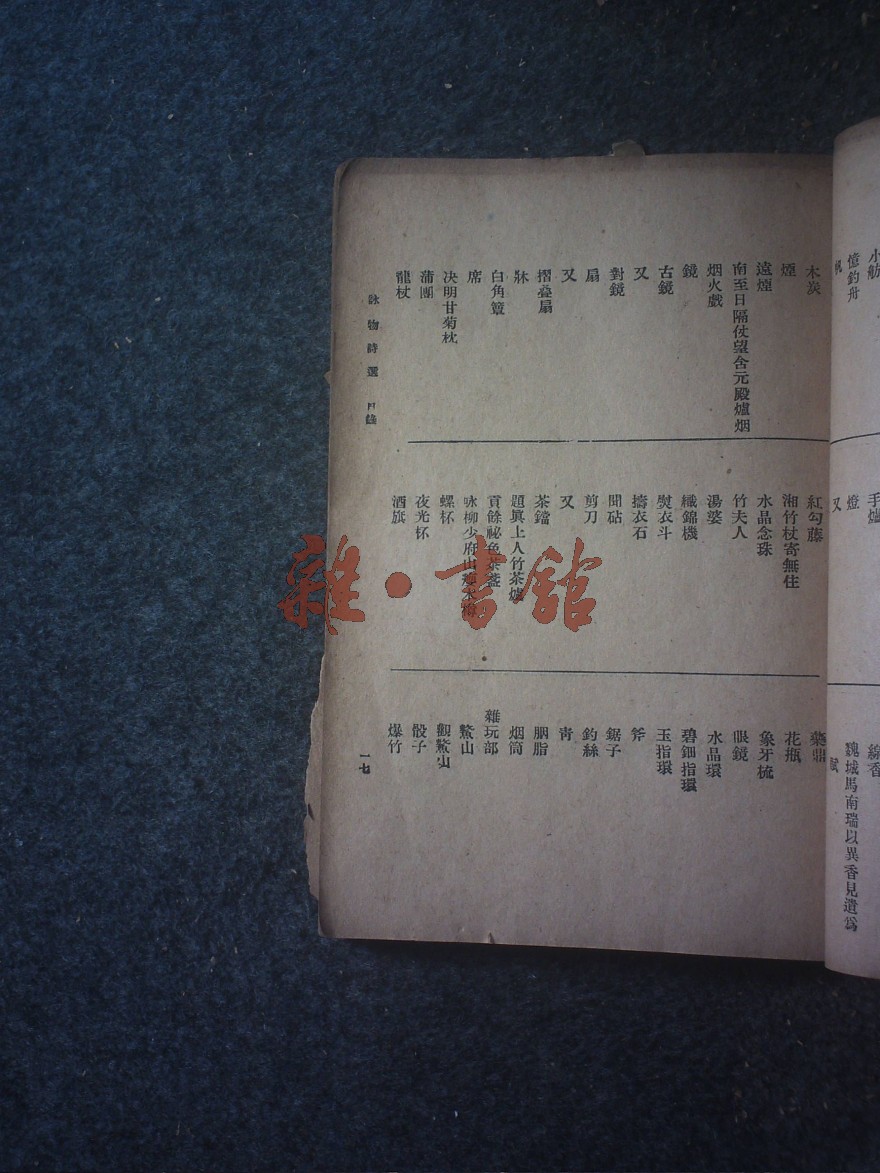 小舫
憶釣舟
帆
木炭
煙
遠煙
南至日隔仗望含元殿爐烟
烟火戲
鏡
古鏡
又
對鏡
扇
又
摺叠扇
牀
白角簟
席
决明甘菊枕
蒲團
龍杖
手爐
燈
又
紅勾藤
湘竹杖寄無住
水晶念珠
竹夫人
湯婆
織錦機
熨衣斗
擣衣石
聞砧
剪刀
又
茶鐺
題眞上人竹茶爐
貢餘祕色茶盞
咏柳少府山癭木樽
螺杯
夜光杯
酒旗
線香
魏城馬南瑞以異香見遺爲
賦
藥鼎
花瓶
象牙梳
眼鏡
水晶環
碧鈿指環
玉指環
斧
鋸子
釣絲
靑
胭脂
烟筒
雜玩部
鰲山
觀鰲山
骰子
爆竹
詠物詩選 目錄
一七
雜·書館